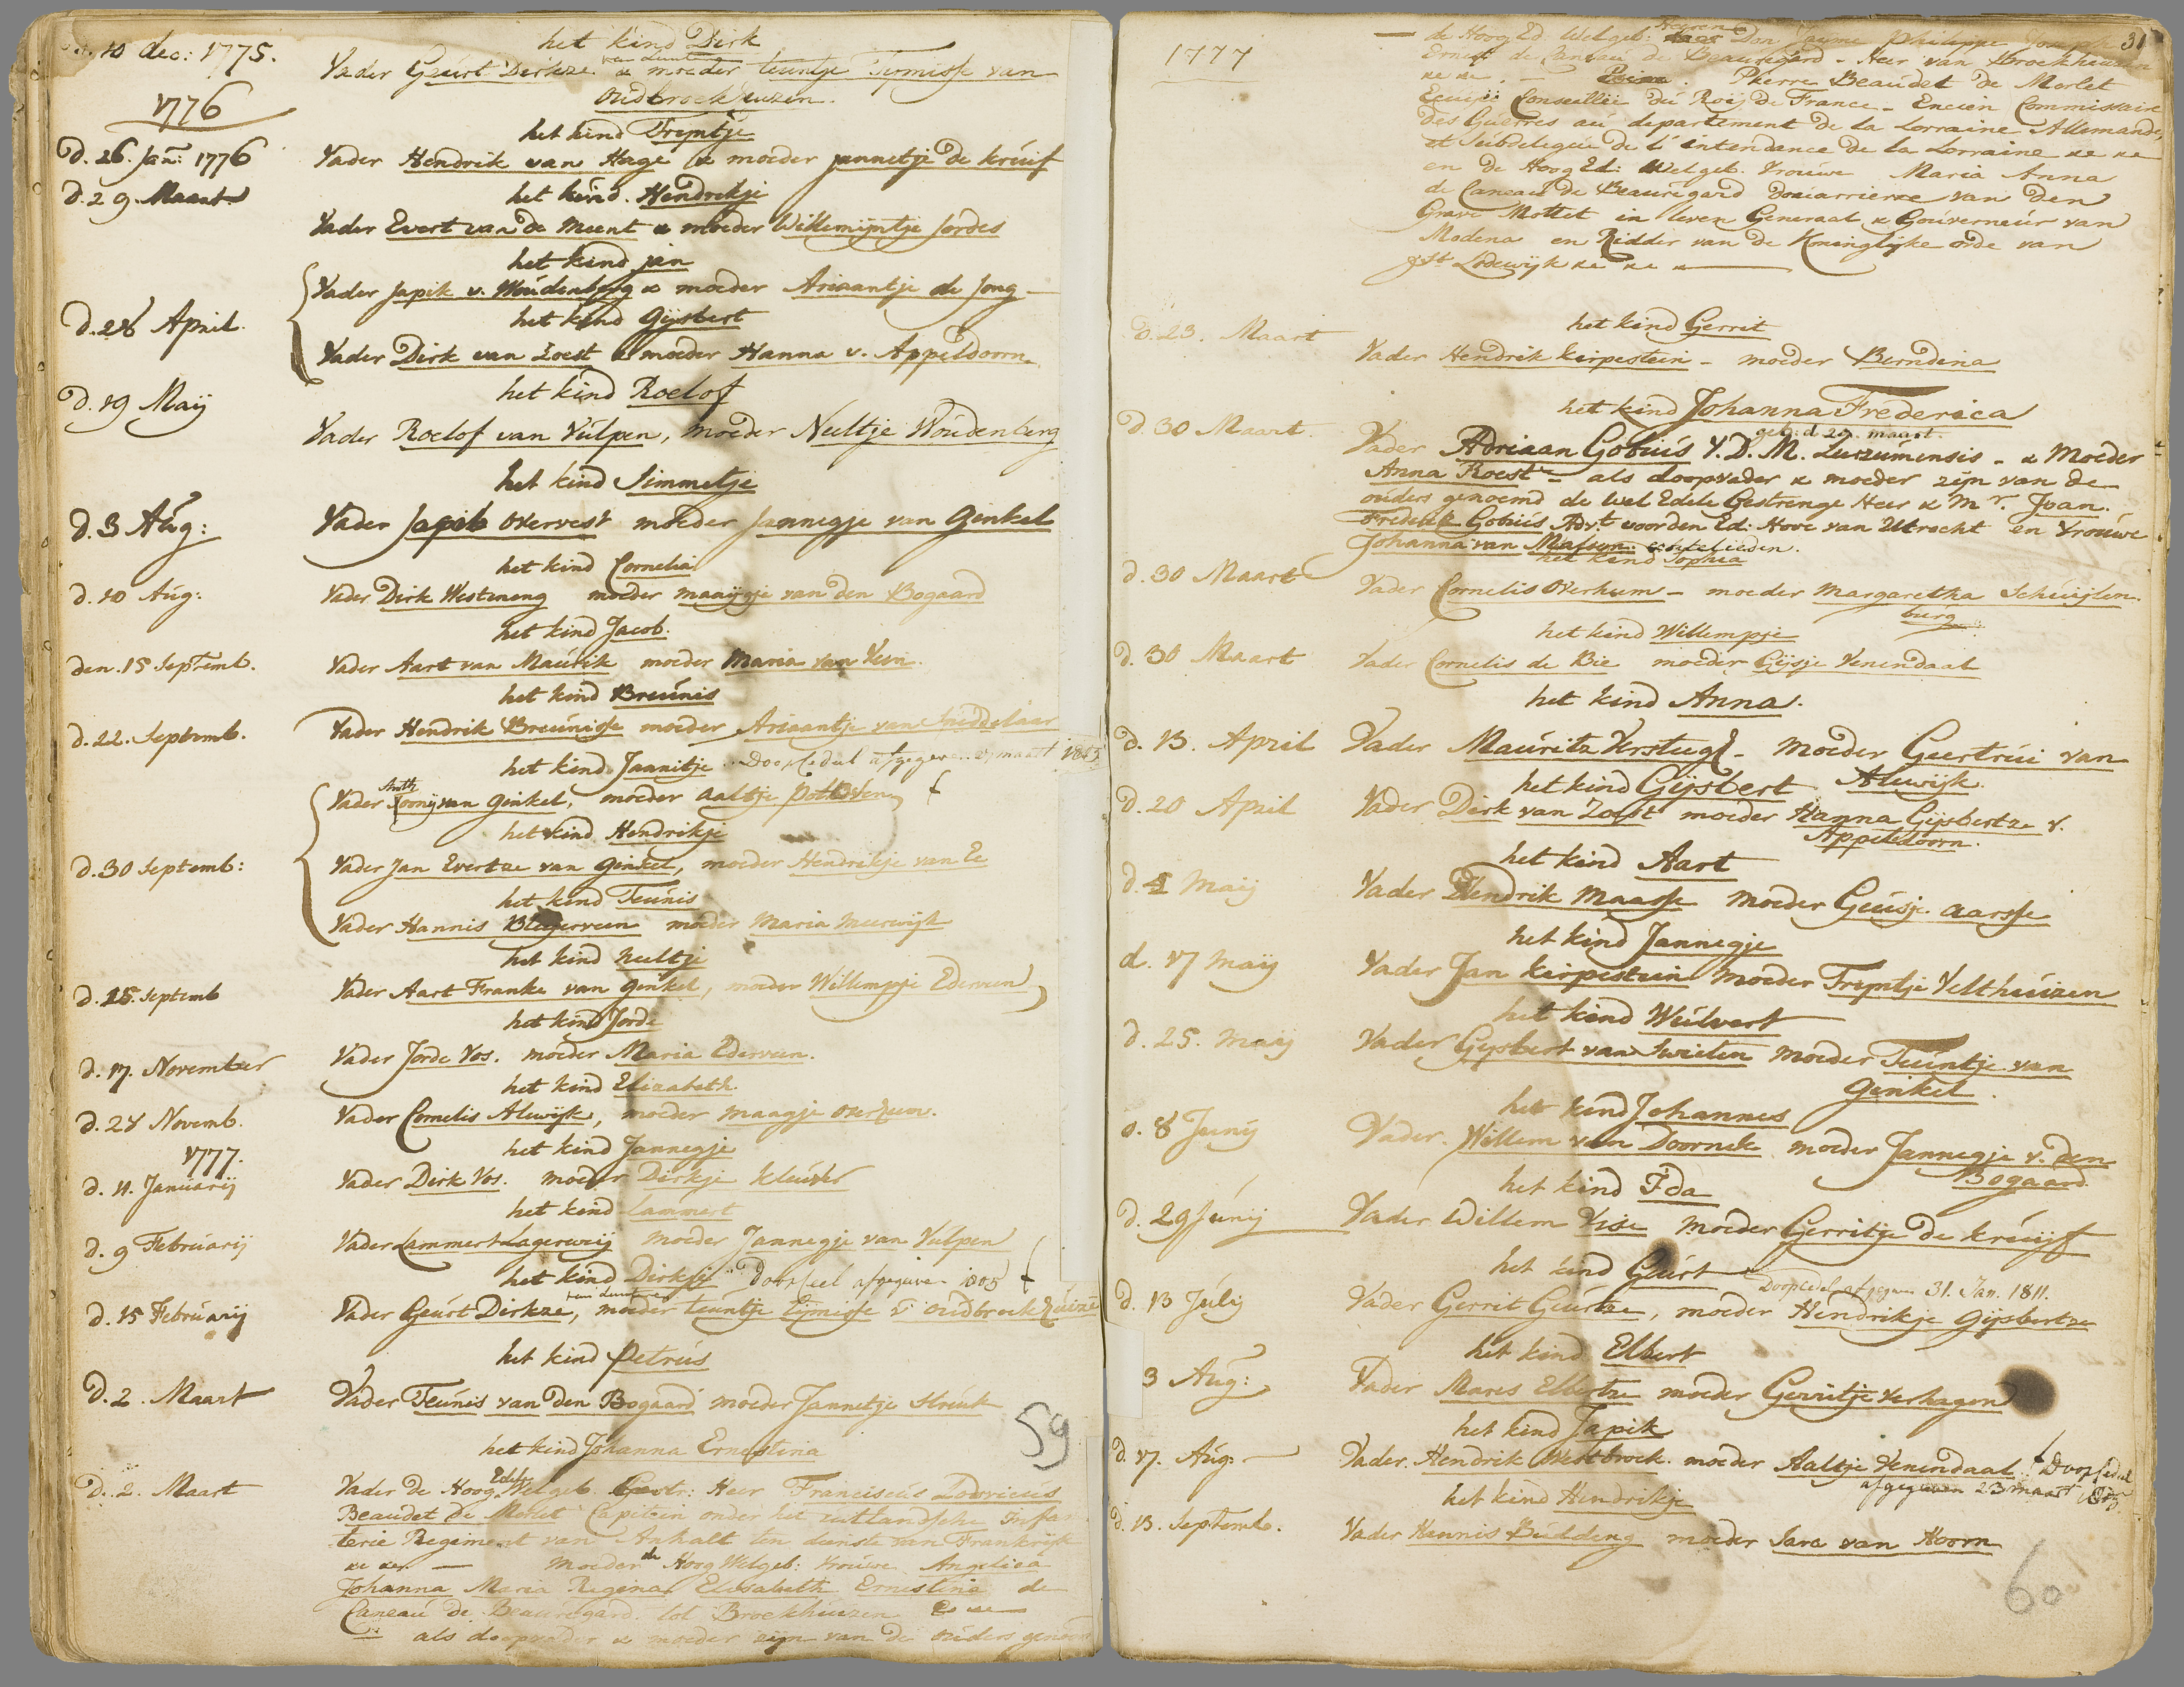 10 dec: 1775.
het kind Dirk
Vader Geurt Dirkze & moeder teuntje Temisse van
oudbroekhuizen.
1776
het kind Tryntje
d. 26. Jan: 1776 Vader Hendrik van Hage & moeder jannetje de kruif
d. 29. Maart
het kind. Hendrikje
Vader Evert van de Meent & moeder Willemijntje Jordes
het kind jan
Vader Japik v. Woudenberg & moeder Ariaantje de Jong
d. 28 April.
het kind Gijsbert
Vader Dirk van Zoest & moeder Hanna v. Appeldoorn
het kind Roelof
d. 19 Maij
Vader Roelof van Vulpen, moeder Neeltje Woudenberg
het kind Simmetje
d. 3 Aug:
Vader Japik overvest moeder Jannegje van Ginkel
het kind Cornelia
d. 10 Aug:
Vader Dirk Westeneng moeder maaijgje van den Bogaard
het kind Jacob.
den. 15 Septemb.
Vader Aart van Maurik moeder Maria van Veen.
het kind Breunis
d. 22. Septemb.
Vader Hendrik Breunisse moeder Ariaantje van Middelaar
het kind Jaanitje Doopcedul afgegeven maart
Anth
Vader Toonij van Ginkel, moeder aaltje pothoven
het kind Hendrikje
d. 30 Septemb:
Vader Jan Evertze van Ginkel, moeder Hendrikje van Ee
het kind Teunis
Vader Hannis moeder Maria meerwijk
het kind neeltje
d. 25. Septemb
Vader Aart Franke van Ginkel, moeder Willempje Ederveen
het kind Jorde
d. 17. November
Vader Jorde Vos. moeder Maria Ederveen.
het kind Elizabeth
d. 24 Novemb.
Vader Cornelis Alewijk, moeder maagje overeem.
1777.
het kind Jannegje
d. 11. Januarij
Vader Dirk Vos. moeder Dirkje kleuver
het kind Lammert
d. 9 Februarij
Vader Lammert Lagerweij moeder Jannegje van Vulpen
het kind Dirkje Doopceel afgegeven 1805
d. 15 Februarij
Vader Geurt Dirkze, moeder teuntje Tijmisse v. oudbroekhuize
het kind Petrus
d. 2. Maart
Vader Teunis van den Bogaard moeder Jannetje Struik
59
het kind Johanna Ernestina
d. 2. Maart
Edele
Vader de Hoog Welgeb. Gestr: Heer Franciscus Lodovicus
Beaudet de Morlet Capitein onder het duitlandsche Infan
terie Regiment van Anhalt ten dienste van Frankrijk
&c &c. — Moeder de Hoog Welgeb: vrouwe Angelica
Johanna Maria Regina Elisabeth Ernestina de
Caneau de Beauregard. tot Broekhuizen &c
als doopvader & moeder zijn van de ouders genoemt
1777
31
de Hoog Ed. Welgeb: Heeren Don Jaume Philippe Joseph
Ernest de Caneau de Beauregard - Heer van Broekhuizen
&c &c. - Pierre Beaudet de Morlet
Ecuijer Conseiller du Roij de France - Encien Commissaire
des Guerres au departement de la Lorraine Allemande,
et Subdelegue de l'intendance de la Lorraine &c &c
en de Hoog Ed: Welgeb. Vrouwe Maria Anna
de Caneau de Beauregard Douarriere van den
Grave Mottet in leven Generaal & Gouverneur van
Modena en Ridder van de Koninglijke orde van
St Lodewijk &c &c &
d. 23. Maart
het kind Gerrit
Vader Hendrik kirpestein - moeder Berndina
het kind Johanna Frederica
geb: d 20. maart.
d. 30 Maart.
Vader Adriaan Gobius V. D. M. Luezumensis - & Moeder
Anna Roest - als doopvader & moeder zijn van de
ouders genoemd de Wel Edele Gestrenge Heer & Mr. Joan.
Frederik Gobius Advt. voor den Ed: Hove van Utrecht en Vrouwe
Johanna van echtelieden.
het kind Sophia
d. 30 Maart
Vader Cornelis Overhum - moeder Margaretha Schuijlen
burg
het kind Willempje
d. 30 Maart
Vader Cornelis de Bie moeder Gijsje Venendaal
het kind Anna.
d. 13. April
Vader Mauritz Versteegh - moeder Geertrui van
Alewijk.
het kind Gijsbert
d. 20 April
Vader Dirk van Zoest moeder Hanna Gijsbertze v.
Appeldoorn.
het kind Aart
d. 4 Maij
Vader Hendrik Maasse moeder Geusje aarsse
het kind Jannegje
d. 17 Maij
Vader Jan kirpestein moeder Tryntje Velthuizen
het kind Wulvert
d. 25. Maij
Vader Gijsbert van Swieten moeder Teuntje van
Ginkel.
het kind Johannes
d. 8 Junij
Vader. Willem van Doornik moeder Jannegje v. den
Bogaard
het kind Ida
d. 29 Junij
Vader Willem Vise moeder Gerritje de kruijf
het kind Geurt Doopcedel afgegeven 31. Jan. 1811.
d. 13 July
Vader Gerrit Geurtze, moeder Hendrikje Gijsbertze
het kind Elbert
3 Aug:
Vader Mares Elbertze moeder Gerritje Verhagen
het kind Japik
d. 17. Aug:
Vader. Hendrik Westbroek. moeder Aaltje Venendaal. Doopcedul
afgegeven 23 maart
het kind Hendrikje
d. 13. Septemb.
Vader Hannis Budding moeder Sara van Hoorn
60